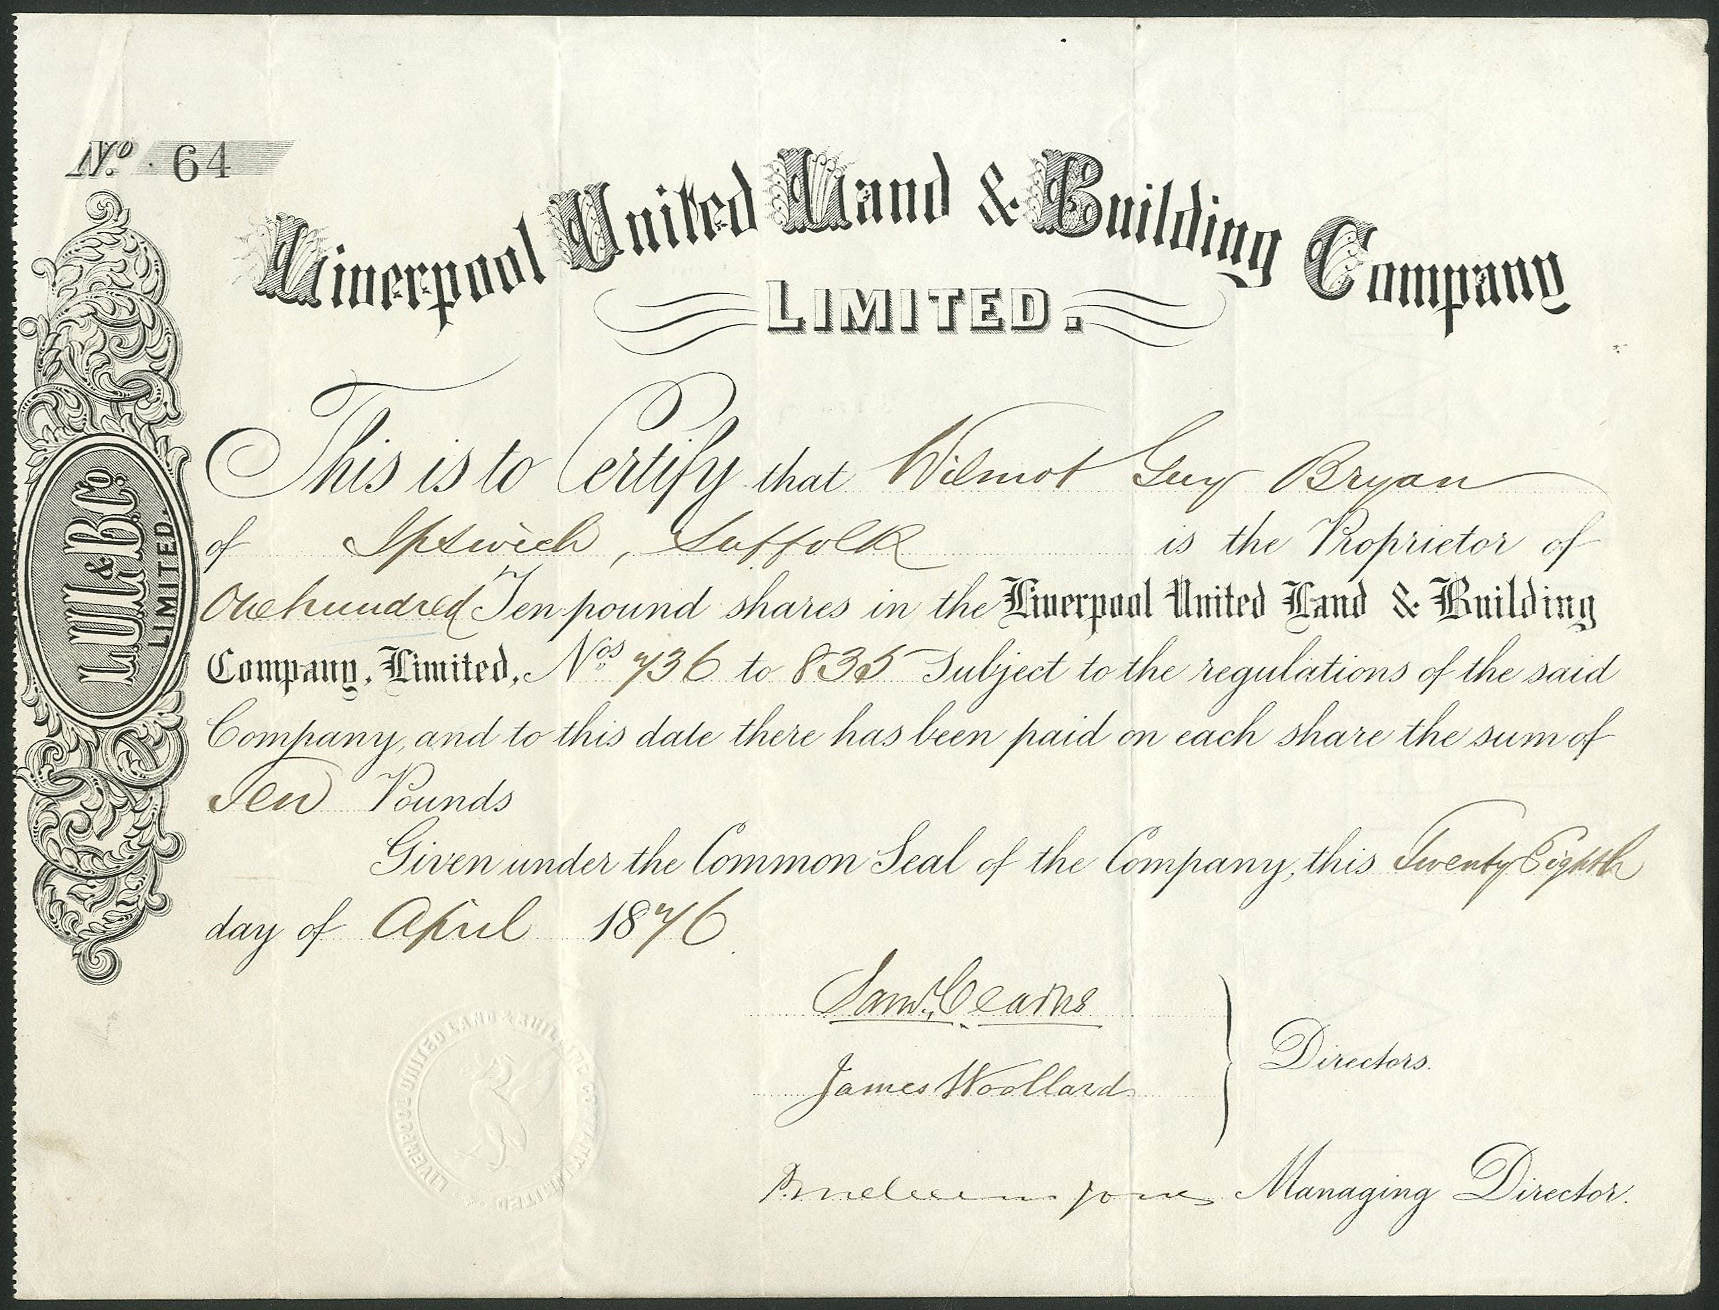 No. 64
Liverpool United Land & Building Company
LIMITED.
L.U.L. & B. Co.
LIMITED.
This is to Certify that Wilmot Guy Bryan
of Ipswich, Suffolk is the Proprietor of
One hundred Ten pound shares in the Liverpool United Land & Building
Company, Limited, Nos 736 to 835 Subject to the regulations of the said
Company, and to this date there has been paid on each share the sum of
Ten Pounds
Given under the Common Seal of the Company, this Twenty Eighth
day of April 1876
Saml. Cearns
James Woollard
Directors.
Jones Managing Director.
LIVERPOOL UNITED LAND & BUILDING COMPANY LIMITED